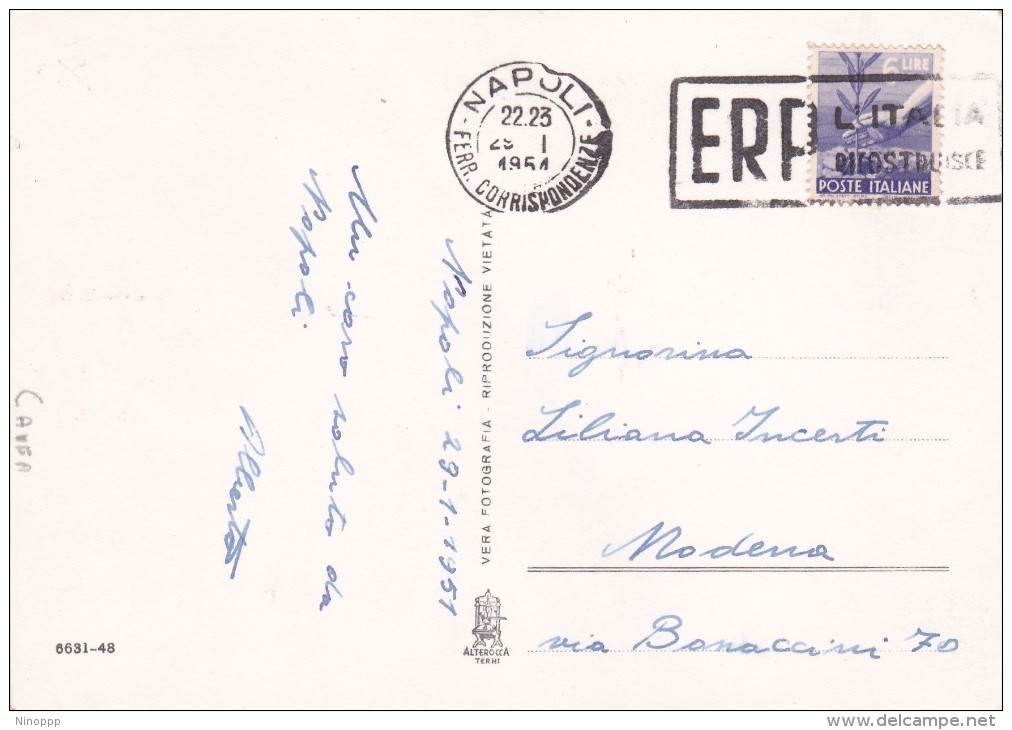 NAPOLI
22.23
29 I
1951
FERR. CORRISPONDENZE
ERP L'ITALIA
RICOSTRUISCE
6 LIRE
POSTE ITALIANE
Un caro saluto da
Napoli.
Alberto
Napoli 29-1-1951
VERA FOTOGRAFIA - RIPRODUZIONE VIETATA
Signorina
Liliana Incerti
Modena
via Bonaccini 70
6631-48
ALTEROCCA
TERNI
Ninoppp
delcampe.net